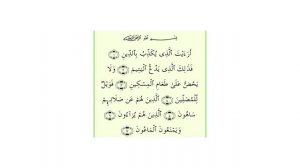 بسم الله الرحمن الرحيم
أَرَءَيْتَ الَّذِى يُكَذِّبُ بِالدِّينِ
فَذَلِكَ الَّذِى يَدُعُّ الْيَتِيمَ وَلَا
يَحُضُّ عَلَىٰ طَعَامِ الْمِسْكِينِ فَوَيْلٌ
لِّلْمُصَلِّينَ الَّذِينَ هُمْ عَن صَلَاتِهِمْ
سَاهُونَ الَّذِينَ هُمْ يُرَاءُونَ
وَيَمْنَعُونَ الْمَاعُونَ